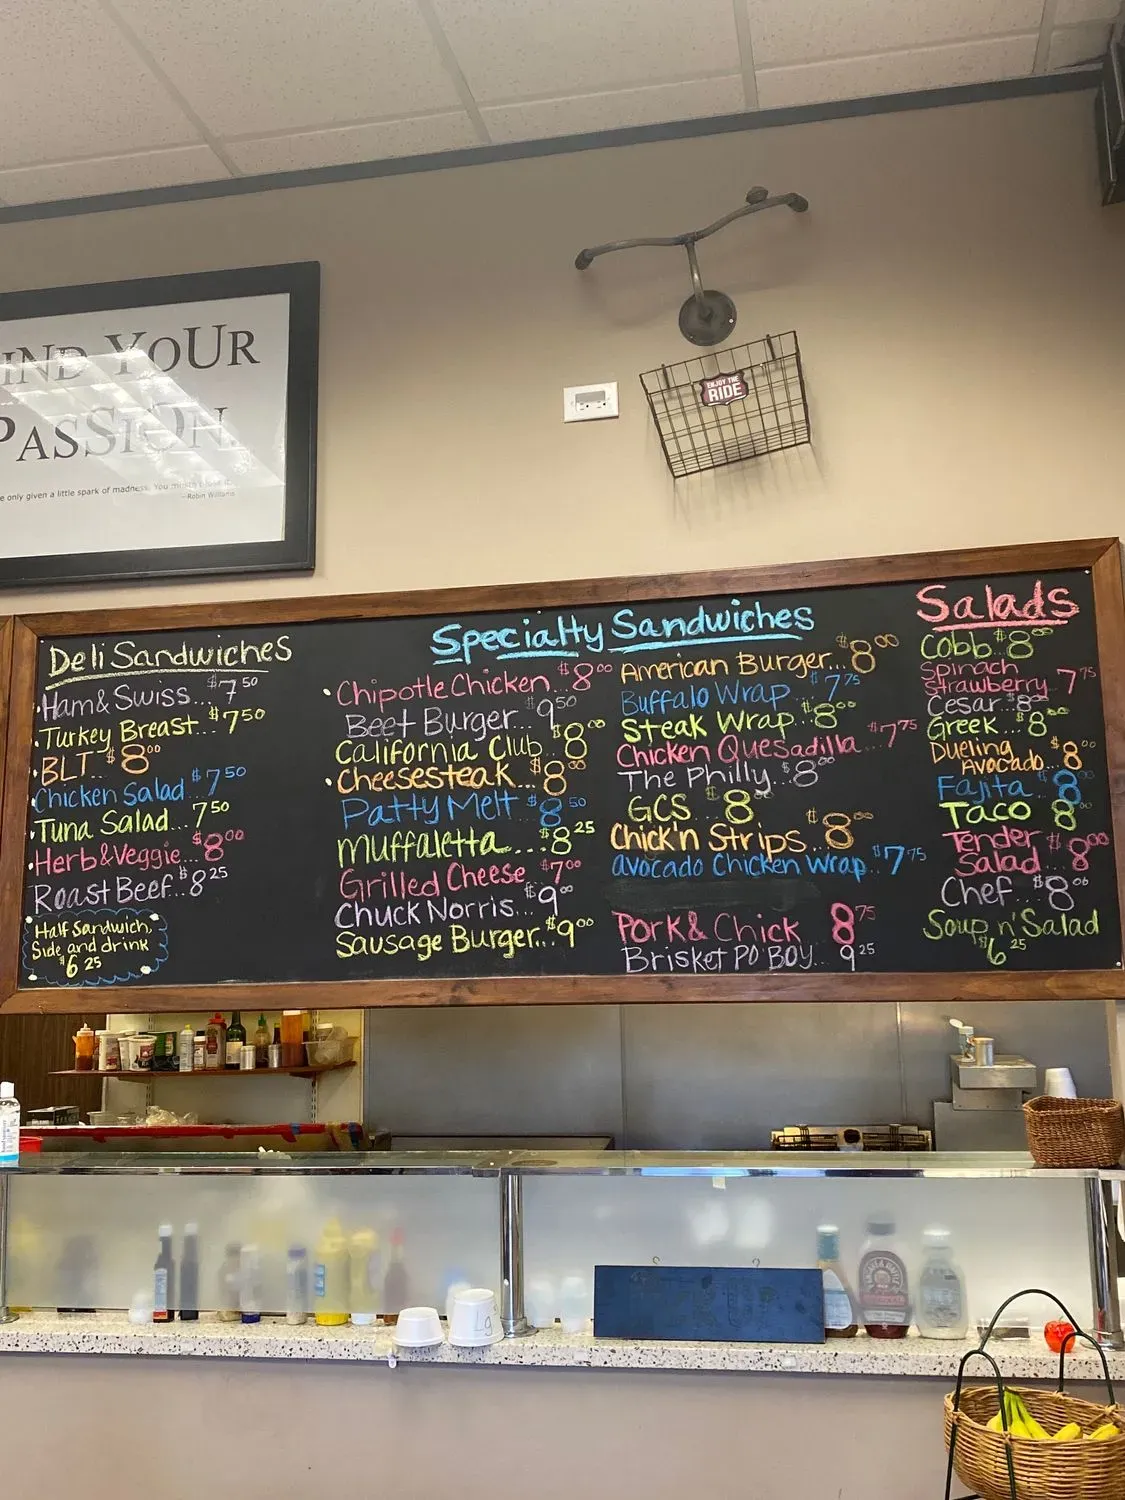 IND YOUR
PASSION.
e only given a little spark of madness. You mustn't lose it.
—Robin Williams
ENJOY THE
RIDE
Deli Sandwiches
Ham & Swiss... $7.50
Turkey Breast... $7.50
BLT... $8.00
Chicken Salad $7.50
Tuna Salad... 7.50
Herb & Veggie... $8.00
Roast Beef... $8.25
Half Sandwich,
Side and drink
$6.25
Specialty Sandwiches
Chipotle Chicken... $8.00
Beef Burger... $9.50
California Club... $8.00
Cheesesteak... $8.00
Patty Melt $8.50
Muffaletta... $8.25
Grilled Cheese $7.00
Chuck Norris... $9.00
Sausage Burger... $9.00
American Burger... $8.00
Buffalo Wrap... $7.75
Steak Wrap... $8.00
Chicken Quesadilla... $7.75
The Philly... $8.00
GCS $8.00
Chick'n Strips... $8.00
Avocado Chicken Wrap... $7.75
Pork & Chick 8.75
Brisket PO BOY... 9.25
Salads
Cobb $8.00
Spinach
Strawberry 7.75
Cesar... $8.00
Greek... $8.00
Dueling
Avocado... $8.00
Fajita $8.00
Taco 8.00
Tender
Salad... $8.00
Chef... $8.00
Soup n' Salad
$6.25
Lg